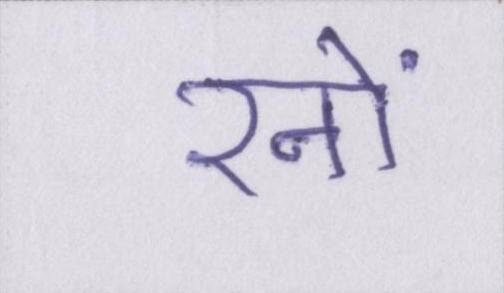 रनों